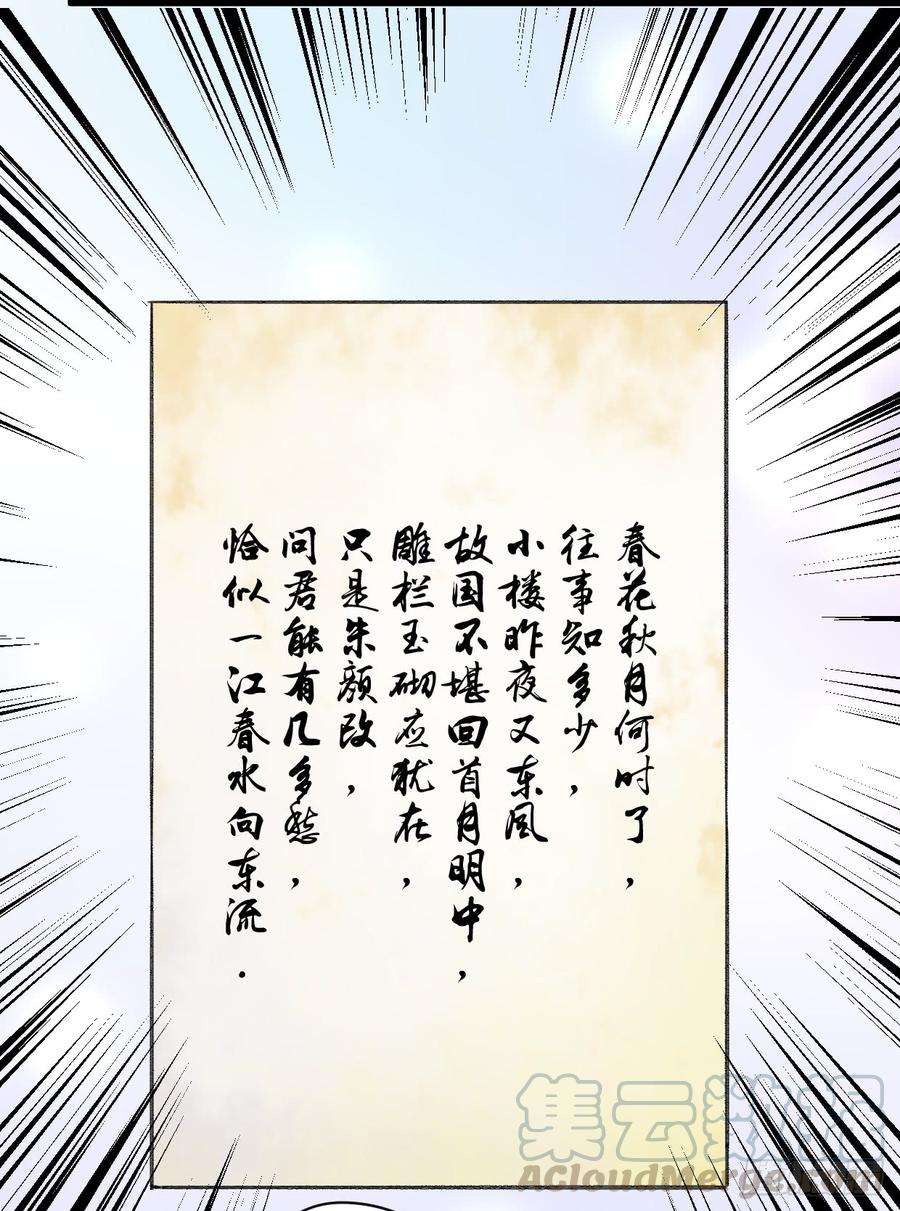 春花秋月何时了，
往事知多少，
小楼昨夜又东风，
故国不堪回首月明中，
雕栏玉砌应犹在，
只是朱颜改，
问君能有几多愁，
恰似一江春水向东流.
集云数据
ACloudMerge.com